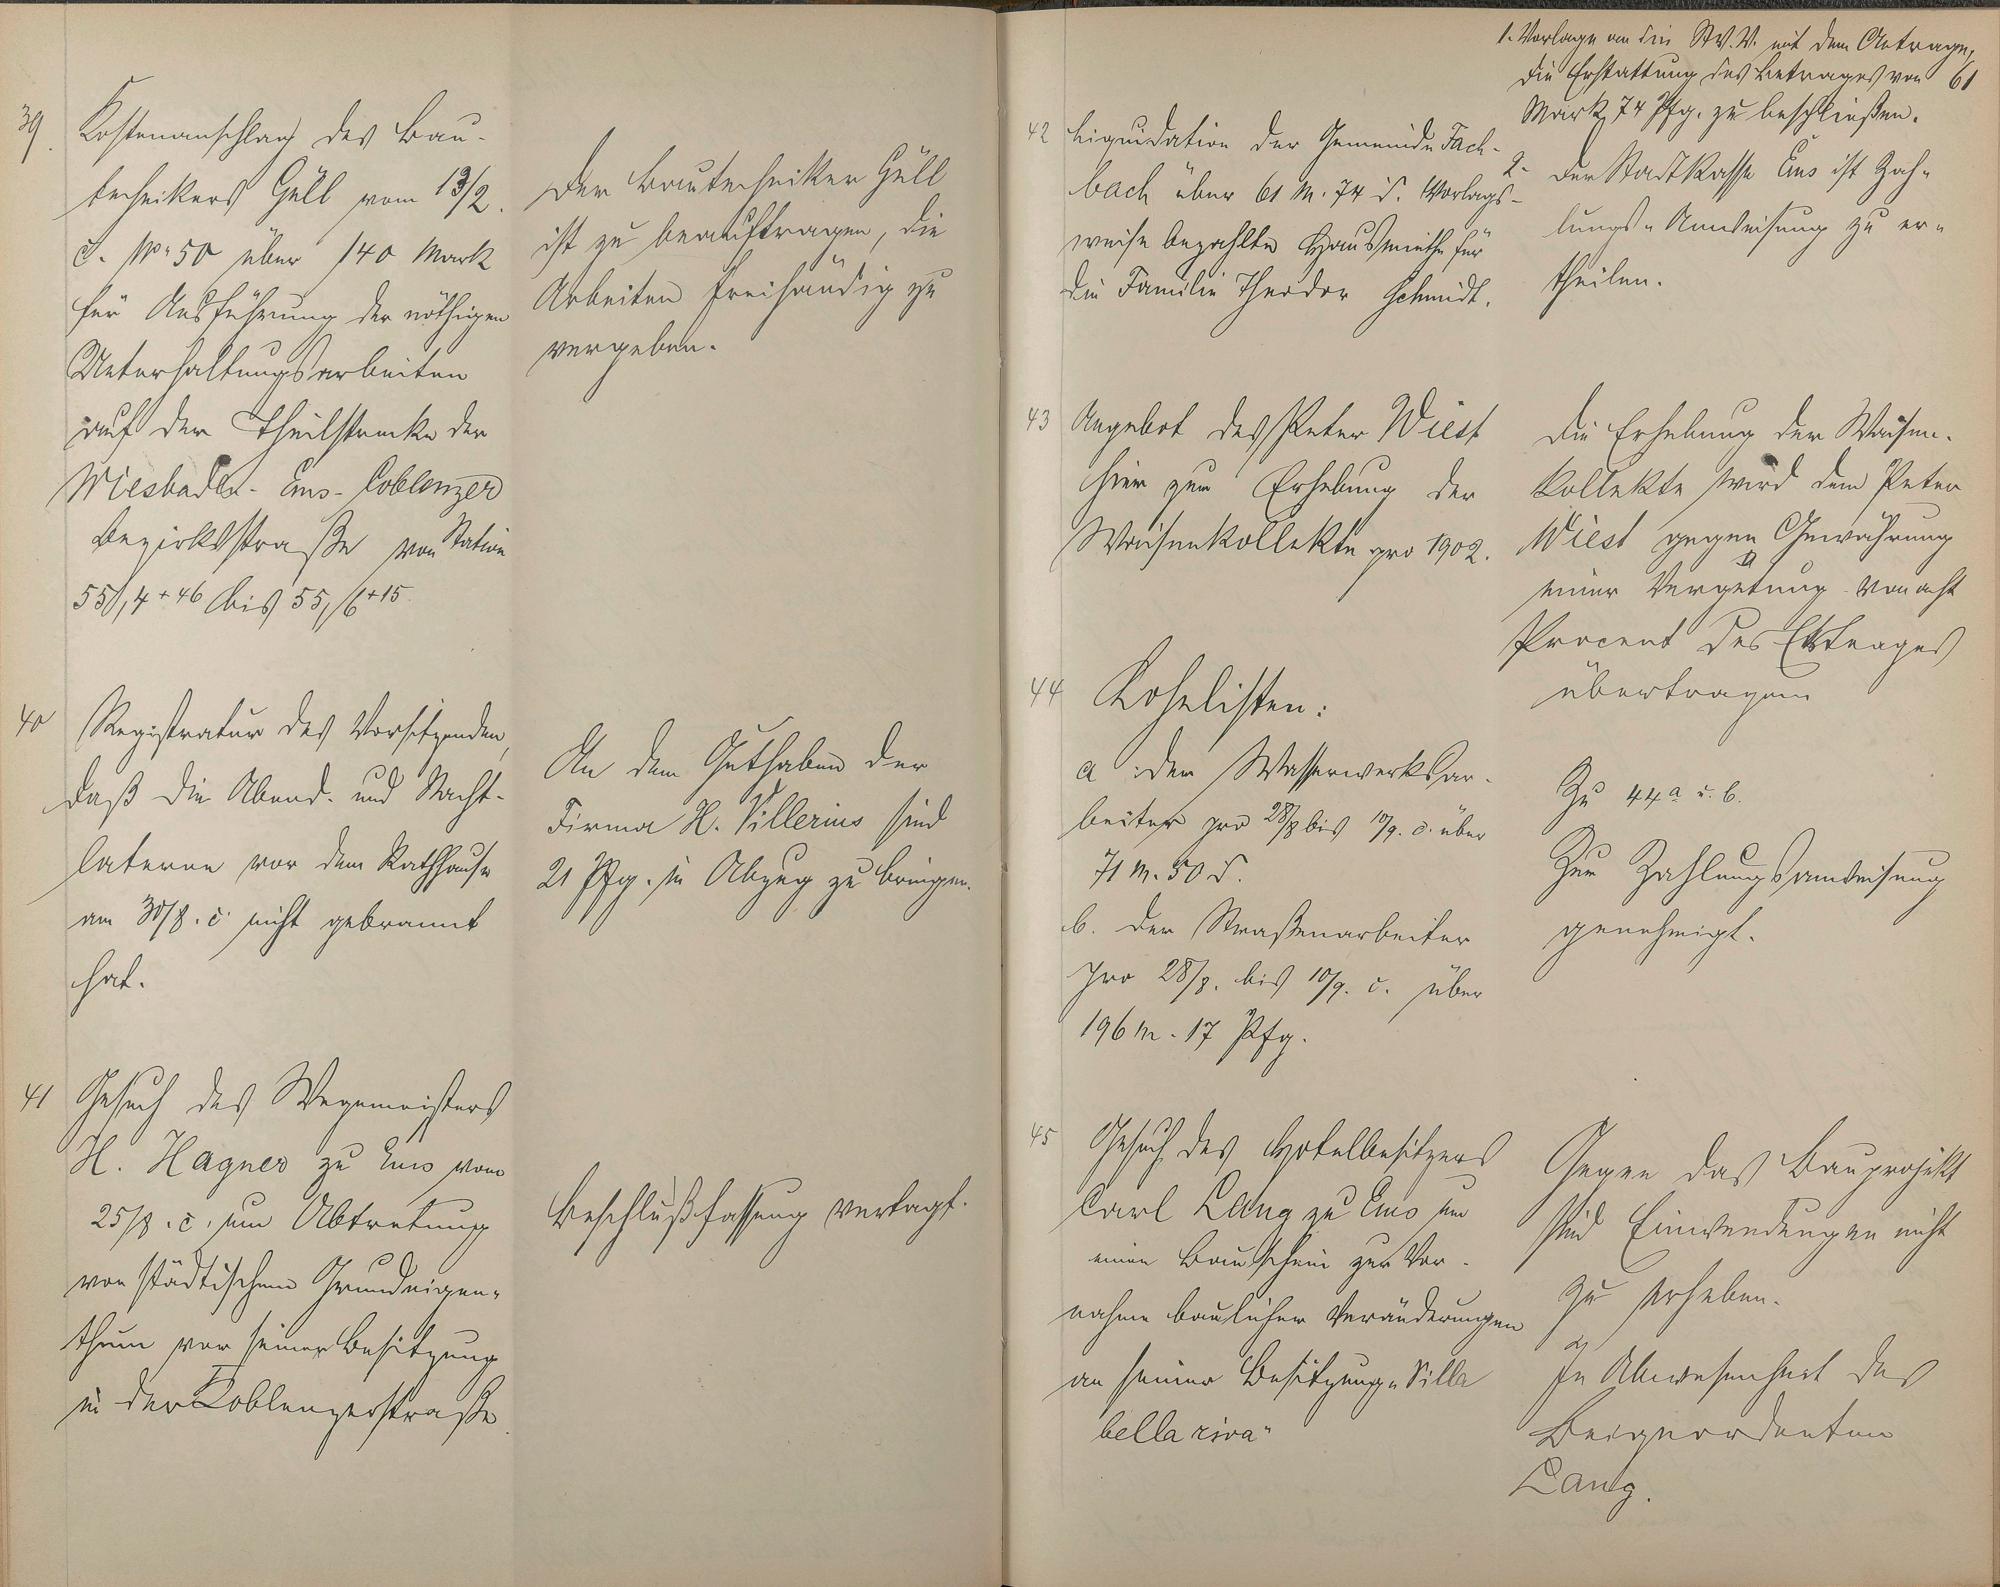 39.
Kostenanschlag des Bau-
technikers Güll vom 13/2.
c. No 50 über 140 Mark
für Ausführung der nöthigen
Unterhaltungsarbeiten
auf der Theilstrecke der
Wiesbaden-Ems-Coblenzer
Bezirksstraße von Station
55,4+46 bis 55,6+15
Der Bautechniker Güll
ist zu beauftragen, die
Arbeiten freihändig zu
vergeben.
40
Registratur des Vorsitzenden,
daß die Abend- und Nacht-
laterne vor dem Rathhause
am 30/8. c. nicht gebrannt
hat.
An dem Guthaben der
Firma H. Villerius sind
21 Pfg. in Abzug zu bringen.
41
Gesuch des Wegemeisters
H. Hagner zu Ems vom
25/8. c. um Abtretung
von städtischem Grundeigen-
thum vor seiner Besitzung
in der Koblenzerstraße
Beschlußfassung vertagt.
42
Liquidation der Gemeinde Fach-
bach über 61 M. 74 d. Vorlags-
weise bezahlte Hausmiethe für
die Familie Theodor Schmidt.
1. Vorlage an die StV.V. mit dem Antrage,
die Erstattung des Betrages von 61
Mark 74 Pfg. zu beschließen.
2. Der Stadtkasse Ems ist Zah-
lungs-Anweisung zu er-
theilen.
43
Angebot des Peter Wiest
hier zur Erhebung der
Waisenkollekte pro 1902.
Die Erhebung der Waisen-
kollekte wird dem Peter
Wiest gegen Gewährung
einer Vergütung von acht
Procent des Ertrages
übertragen
44
Lohnlisten:
a. der Wasserwerksar-
beiter pro 28/8 bis 10/9. c. über
71 M. 50 d.
b. der Straßenarbeiter
pro 28/8. bis 10/9. c. über
196 M. 17 Pfg.
Zu 44a u. b.
Zur Zahlungsanweisung
genehmigt.
45
Gesuch des Hotelbesitzers
Carl Lang zu Ems um
einen Bauschein zur Vor-
nahme baulicher Veränderungen
an seiner Besitzung „Villa
bella riva"
Gegen das Bauprojekt
sind Einwendungen nicht
zu erheben.
In Abwesenheit des
Beigeordneten
Lang.